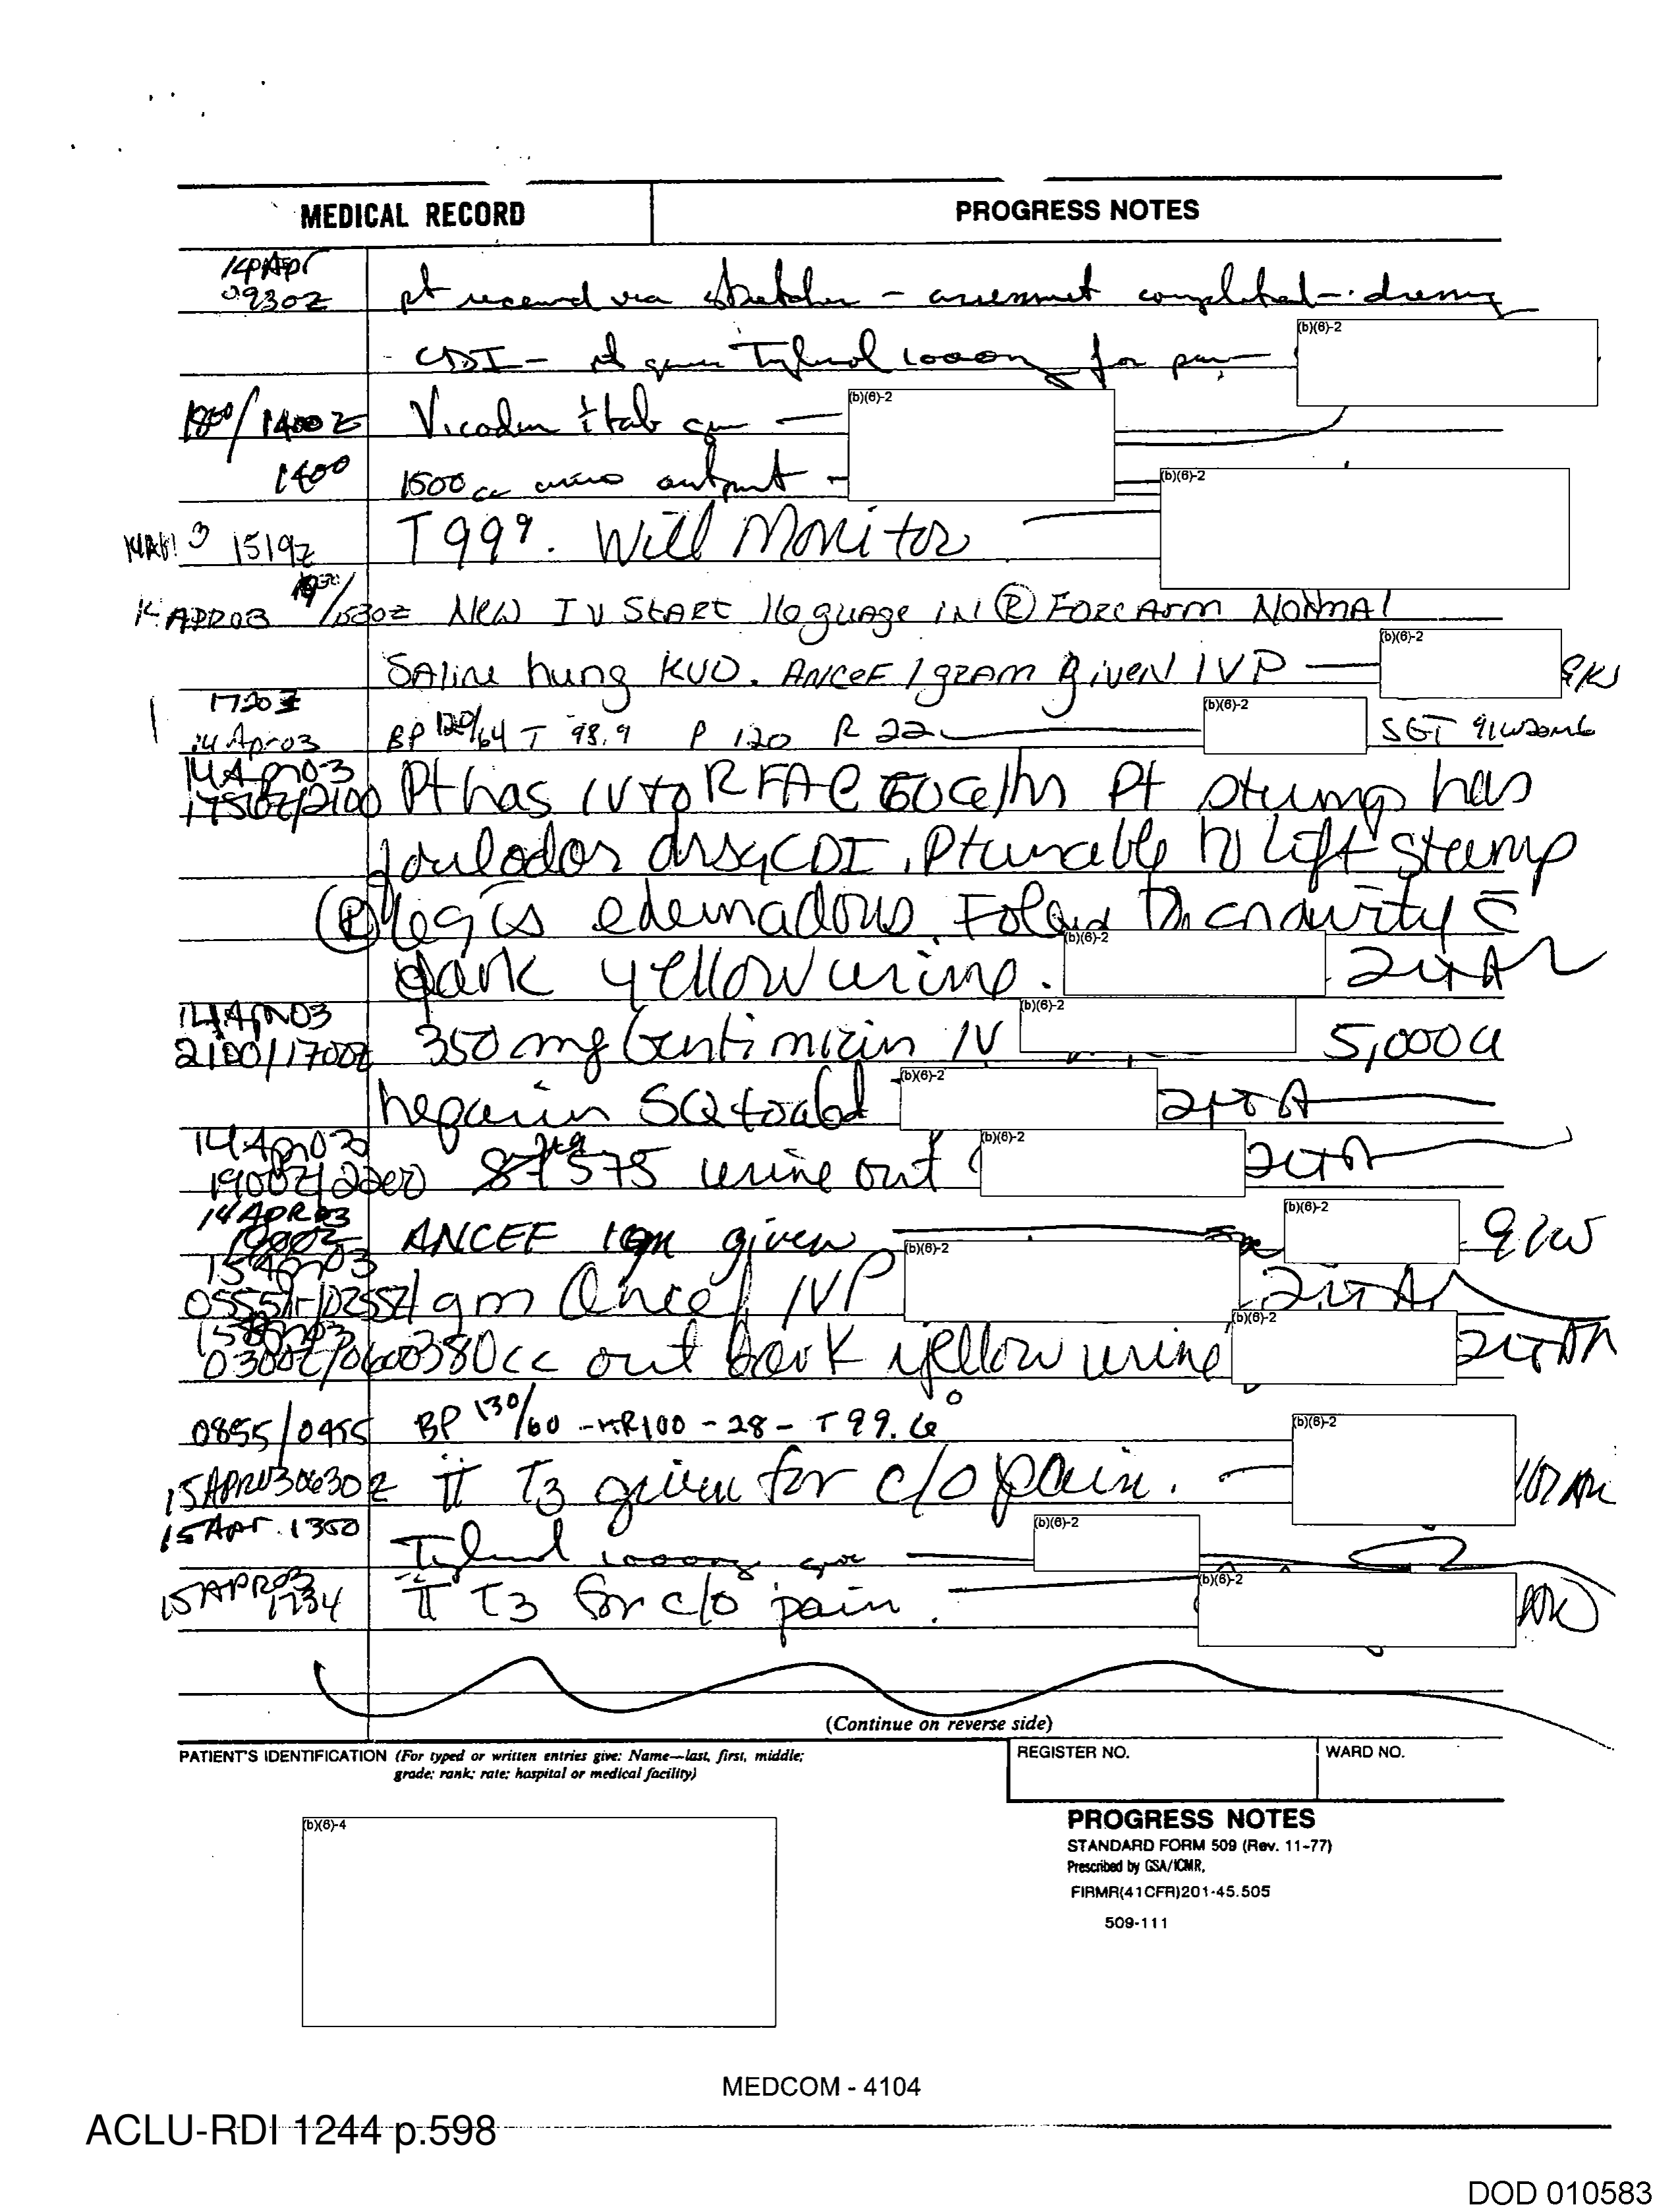 MEDICAL RECORD
PROGRESS NOTES
14 Apr
0930Z pt received via stretcher - assessment completed - dressing
(b)(6)-2
CDI - pt given Tylenol 1000mg for pain
1400Z Vicodin tab given
(b)(6)-2
1400 1500cc urine output
(b)(6)-2
1519Z T 99⁹. Will Monitor
14 APR03 1530Z NEW IV START 16 guage IN Ⓡ FORE ARM NORMAl
(b)(6)-2
SAline hung KVO. ANCEF 1 gram given IVP
1720Z
(b)(6)-2
14 Apr 03 BP 120/64 T 98.9 P 120 R 22 SGT 91W20M6
14 Apr 03
1750Z/2100 Pt has IV to R FA @ 60cc/hr Pt stump has
foul odor drsg CDI. Pt unable to lift stump
Ⓡ leg is edemadous. Foley to gravity c̄
(b)(6)-2
dark yellow urine. 2LT AN
14 Apr 03
(b)(6)-2
2100/1700Z 350 mg Gentimicin IV 5,000 u
(b)(6)-2
heparin SQ to abd 2LT AN
14 Apr 03
(b)(6)-2
1900Z/2200 575 urine out 2LT AN
14 APR 03
(b)(6)-2
1900Z ANCEF 1gm given 91W
15 Apr 03
(b)(6)-2
0555/0255Z 1 gm Ancef IVP 2LT AN
15 Apr 03
(b)(6)-2
0300Z/0600 380cc out dark yellow urine 2LT AN
0855/0455 BP 130/60 - HR100 - 28 - T 99.6°
(b)(6)-2
15APR03 0630Z ii T3 given for c/o pain.
15 Apr 1350
(b)(6)-2
Tylenol 1000mg given
15APR03
(b)(6)-2
1734 ii T3 for c/o pain.
(Continue on reverse side)
PATIENT'S IDENTIFICATION (For typed or written entries give: Name—last, first, middle;
grade; rank; rate; hospital or medical facility)
REGISTER NO.
WARD NO.
(b)(6)-4
PROGRESS NOTES
STANDARD FORM 509 (Rev. 11-77)
Prescribed by GSA/ICMR,
FIRMR(41CFR)201-45.505
509-111
MEDCOM - 4104
ACLU-RDI 1244 p.598
DOD 010583